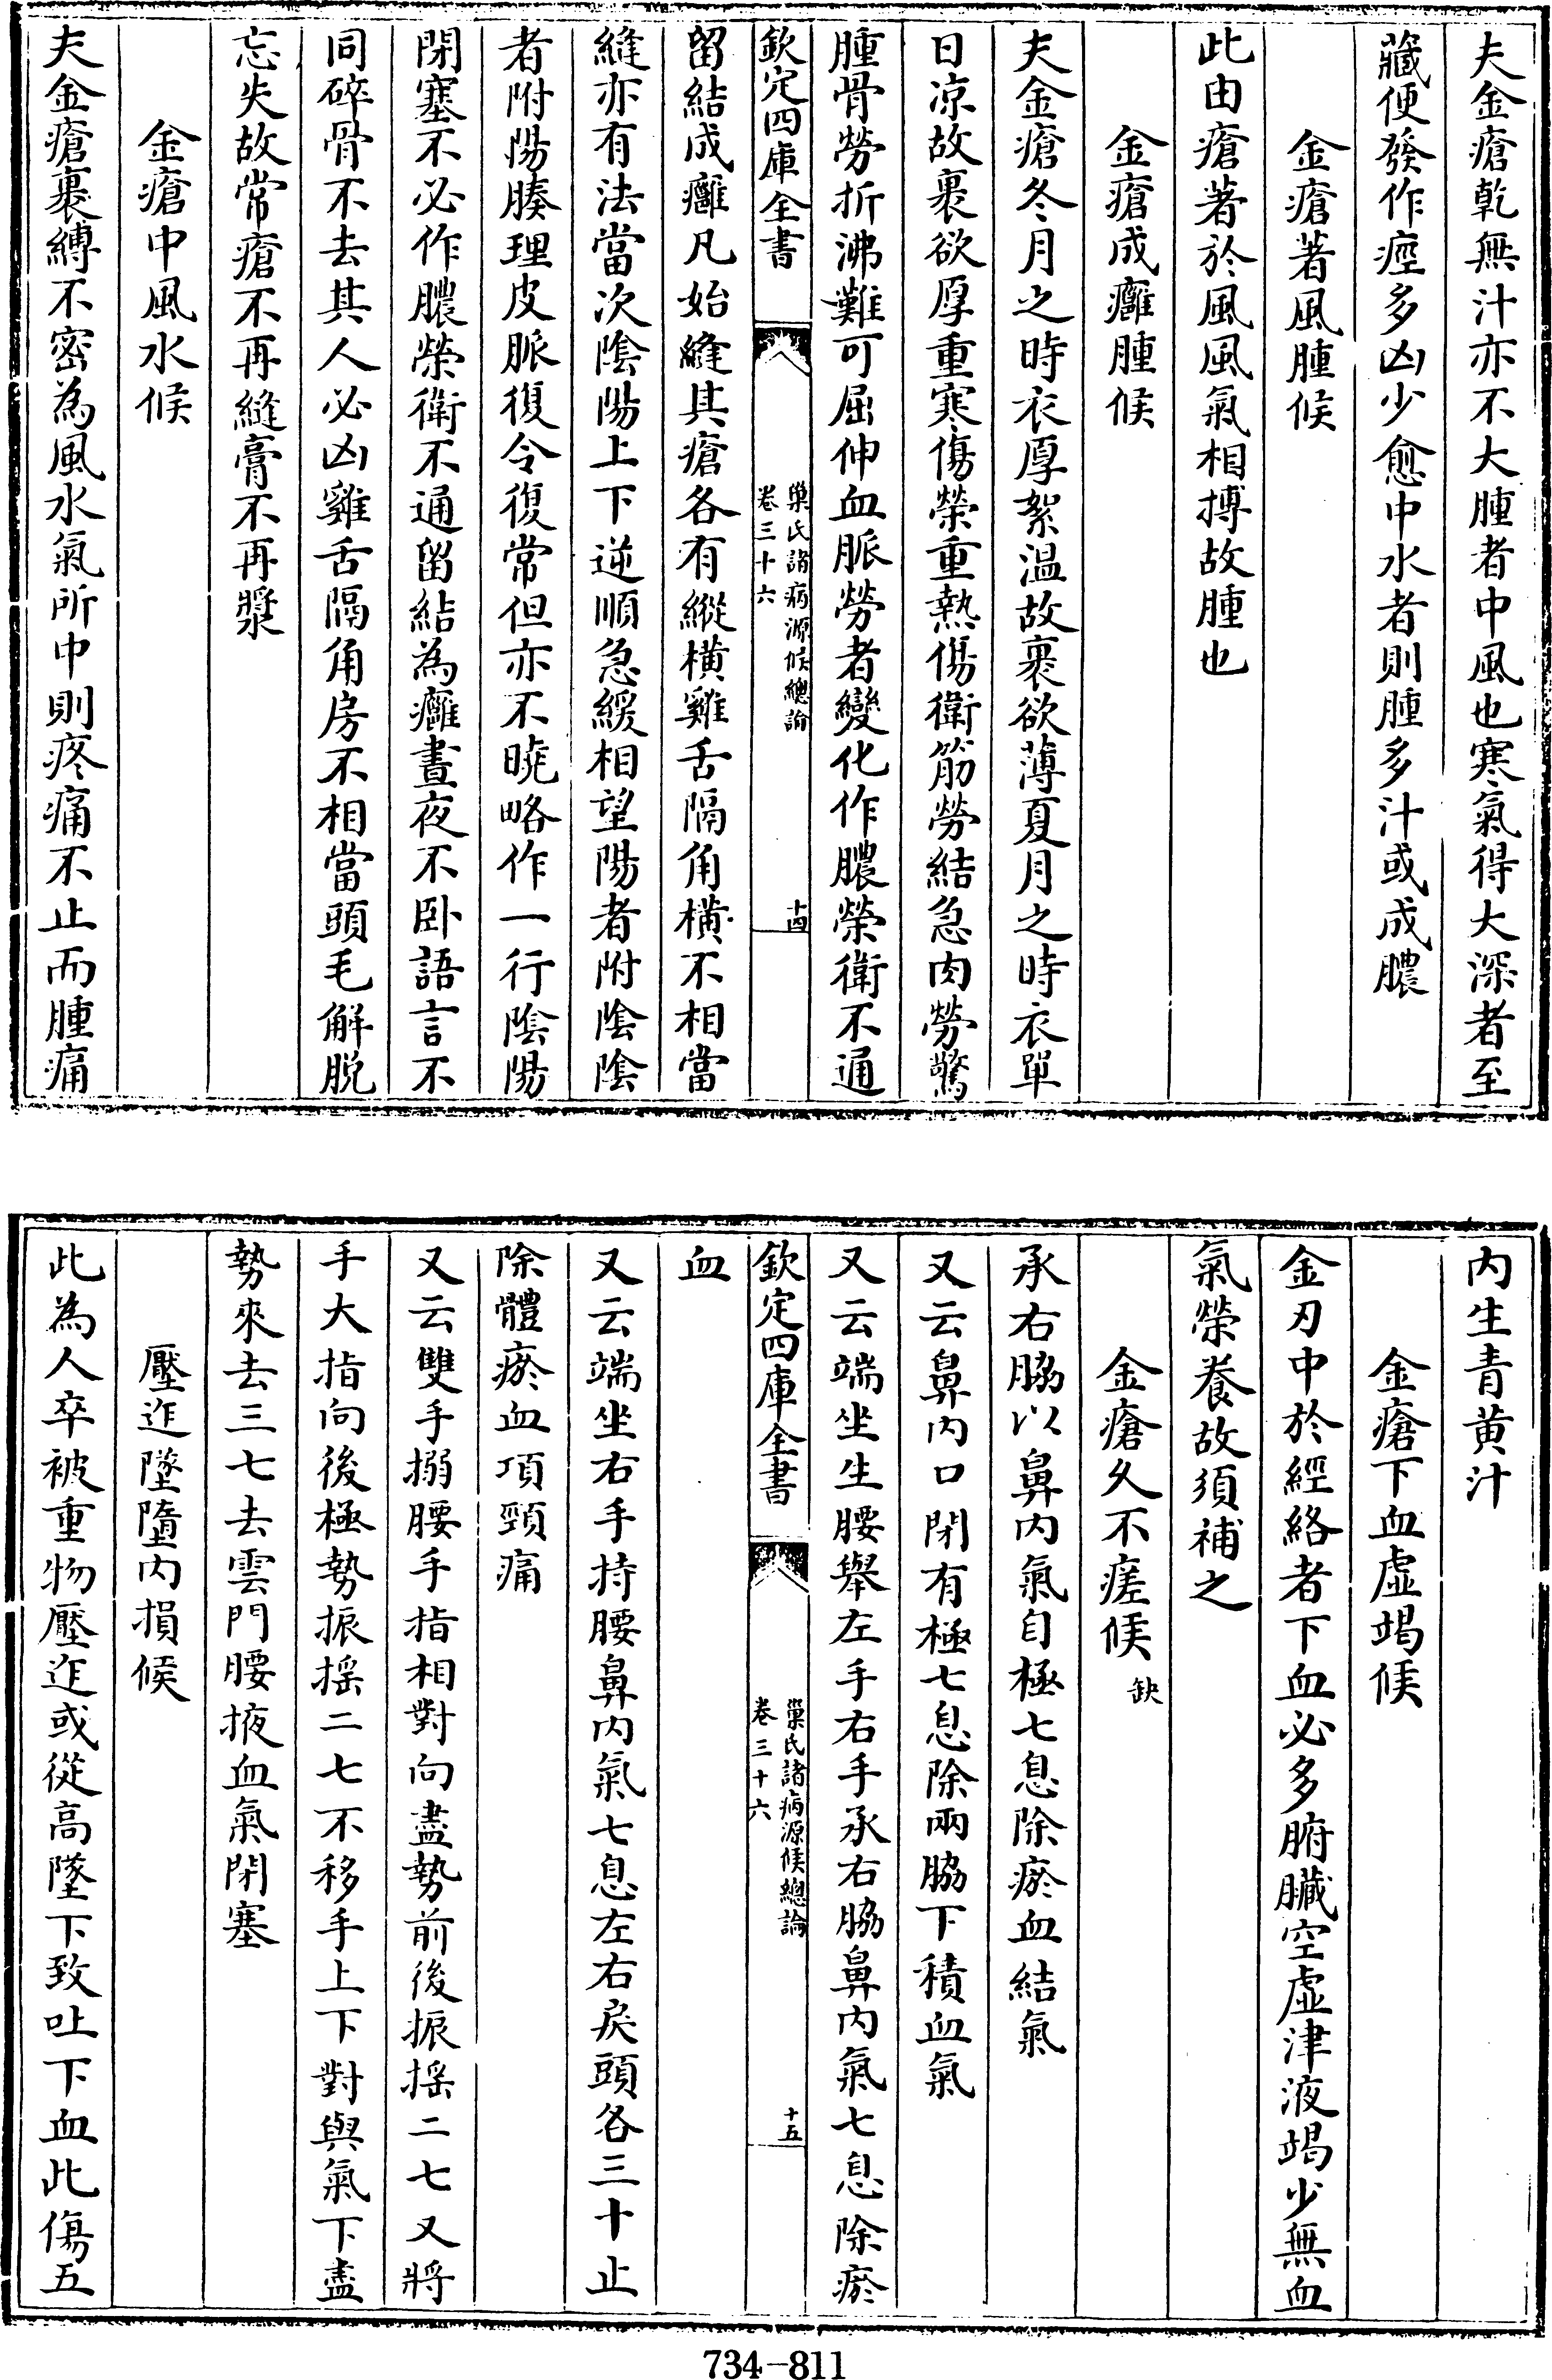 夫金瘡乾無汁亦不大腫者中風也寒氣得大深者至
藏便發作痙多凶少愈中水者則腫多汁或成膿
金瘡著風腫候
此由瘡著於風風氣相搏故腫也
金瘡成癰腫候
夫金瘡冬月之時衣厚絮温故裹欲薄夏月之時衣單
日凉故裹欲厚重寒傷榮重熱傷衛筋勞結急肉勞驚
腫骨勞折沸難可屈伸血脈勞者變化作膿榮衛不通
欽定四庫全書
巢氏諸病源候總論
卷三十六
十四
留結成癰凡始縫其瘡各有縱橫雞舌隔角橫不相當
縫亦有法當次陰陽上下逆順急緩相望陽者附陰陰
者附陽腠理皮脈復令復常但亦不曉略作一行陰陽
閉塞不必作膿榮衛不通留結為癰晝夜不卧語言不
同碎骨不去其人必凶雞舌隔角房不相當頭毛解脱
忘失故常瘡不再縫膏不再漿
金瘡中風水候
夫金瘡裹縛不密為風水氣所中則疼痛不止而腫痛
内生青黄汁
金瘡下血虚竭候
金刃中於經絡者下血必多腑臟空虚津液竭少無血
氣榮養故須補之
金瘡久不瘥候缺
承右脇以鼻内氣自極七息除瘀血結氣
又云鼻内口閉有極七息除兩脇下積血氣
又云端坐生腰舉左手右手承右脇鼻内氣七息除瘀
欽定四庫全書
巢氏諸病源候總論
卷三十六
十五
血
又云端坐右手持腰鼻内氣七息左右戾頭各三十止
除體瘀血項頸痛
又云雙手搦腰手指相對向盡勢前後振摇二七又將
手大指向後極勢振摇二七不移手上下對與氣下盡
勢來去三七去雲門腰掖血氣閉塞
壓迮墜墮内損候
此為人卒被重物壓迮或從高墜下致吐下血此傷五
734-811